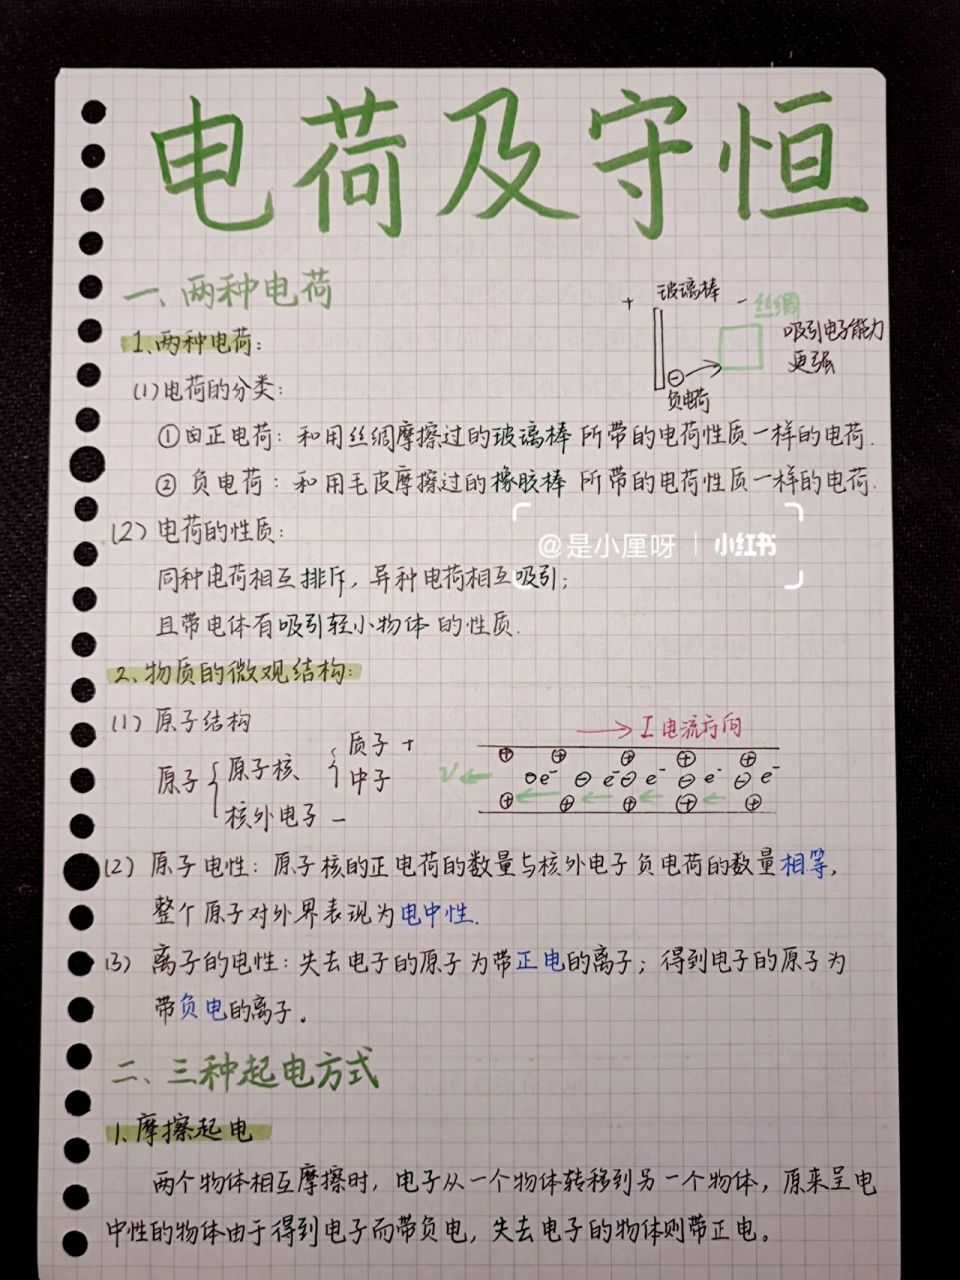 电荷及守恒
一、两种电荷
+ 玻璃棒 - 丝绸
吸引电子能力
更强
⊖
负电荷
1、两种电荷：
(1)电荷的分类：
①正电荷：和用丝绸摩擦过的玻璃棒所带的电荷性质一样的电荷.
② 负电荷：和用毛皮摩擦过的橡胶棒 所带的电荷性质一样的电荷.
(2) 电荷的性质：
@是小厘呀 | 小红书
同种电荷相互排斥，异种电荷相互吸引；
且带电体有吸引轻小物体的性质.
2、物质的微观结构：
(1) 原子结构
原子 { 原子核 { 质子 +
中子
核外电子 -
→ I 电流方向
⊕ ⊕ ⊕ ⊕ ⊕
v ← e⁻ ⊖ ⊖ e⁻ ⊖ e⁻ ⊖ e⁻
⊕ ⊕ ⊕ ⊕ ⊕
(2) 原子电性：原子核的正电荷的数量与核外电子负电荷的数量相等，
整个原子对外界表现为电中性.
(3) 离子的电性：失去电子的原子为带正电的离子；得到电子的原子为
带负电的离子。
二、三种起电方式
1、摩擦起电
两个物体相互摩擦时，电子从一个物体转移到另一个物体，原来呈电
中性的物体由于得到电子而带负电，失去电子的物体则带正电。